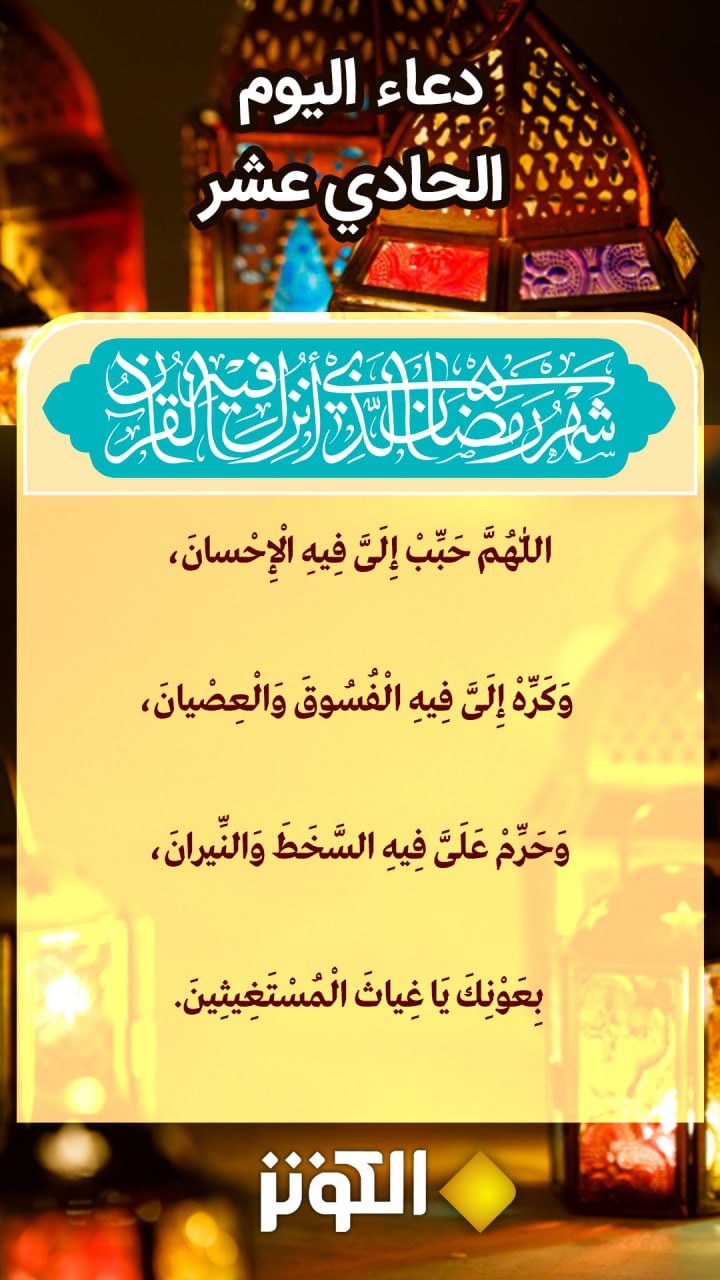 دعاء اليوم
الحادي عشر
شهر رمضان الذي أنزل فيه القرآن
اللّٰهُمَّ حَبِّبْ إِلَىَّ فِيهِ الْإِحْسانَ،
وَكَرِّهْ إِلَىَّ فِيهِ الْفُسُوقَ وَالْعِصْيانَ،
وَحَرِّمْ عَلَىَّ فِيهِ السَّخَطَ وَالنِّيرانَ،
بِعَوْنِكَ يَا غِياثَ الْمُسْتَغِيثِينَ.
الكوثر